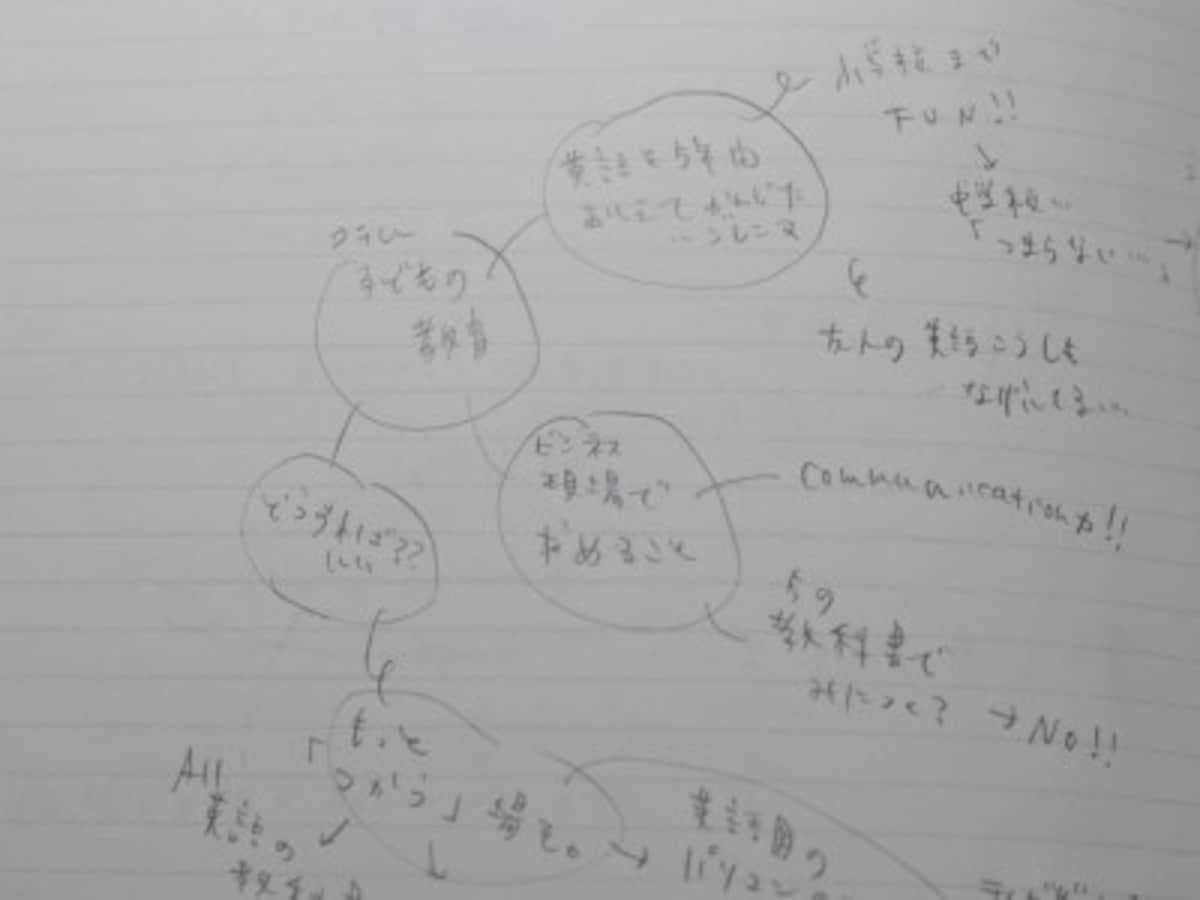 小学校まで
FUN!!
↓
中学校…
「つまらない…」→
英語を5年間
おしえてかんじた
いうこと
子どもの
教育
友人の英語こうしも
なげいてる…
ビジネス
現場で
求めること
communication力!!
どうすれば
いい??
今の
教科書で
みにつく?→No!!
「もっと
つかう」場を。
All
英語の
英語用の
パソコン